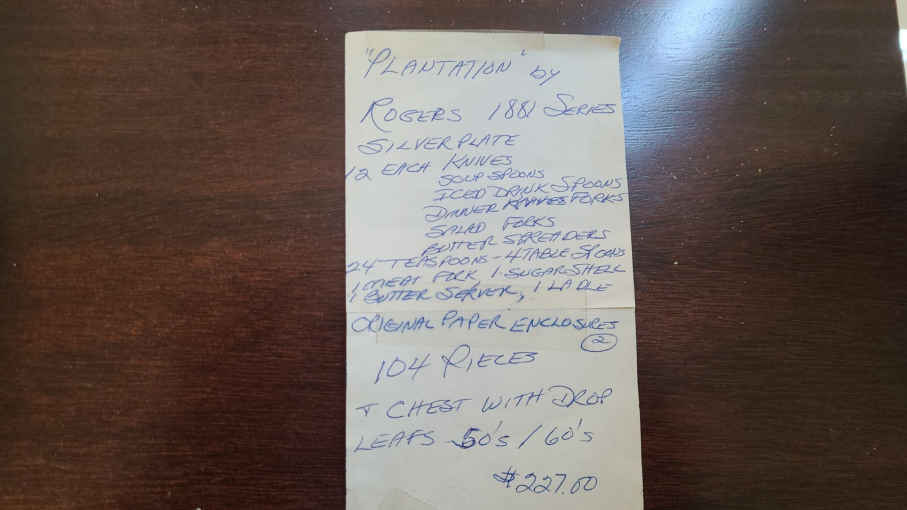 "PLANTATION" by
ROGERS 1881 SERIES
SILVERPLATE
12 EACH KNIVES
SOUP SPOONS
ICED DRINK SPOONS
DINNER FORKS
SALAD FORKS
BUTTER SPREADERS
24 TEASPOONS - 4 TABLE SPOONS
1 MEAT FORK, 1 SUGAR SHELL
1 BUTTER SERVER, 1 LADLE
ORIGINAL PAPER ENCLOSURES
2
104 PIECES
+ CHEST WITH DROP
LEAFS 50's / 60's
$227.00